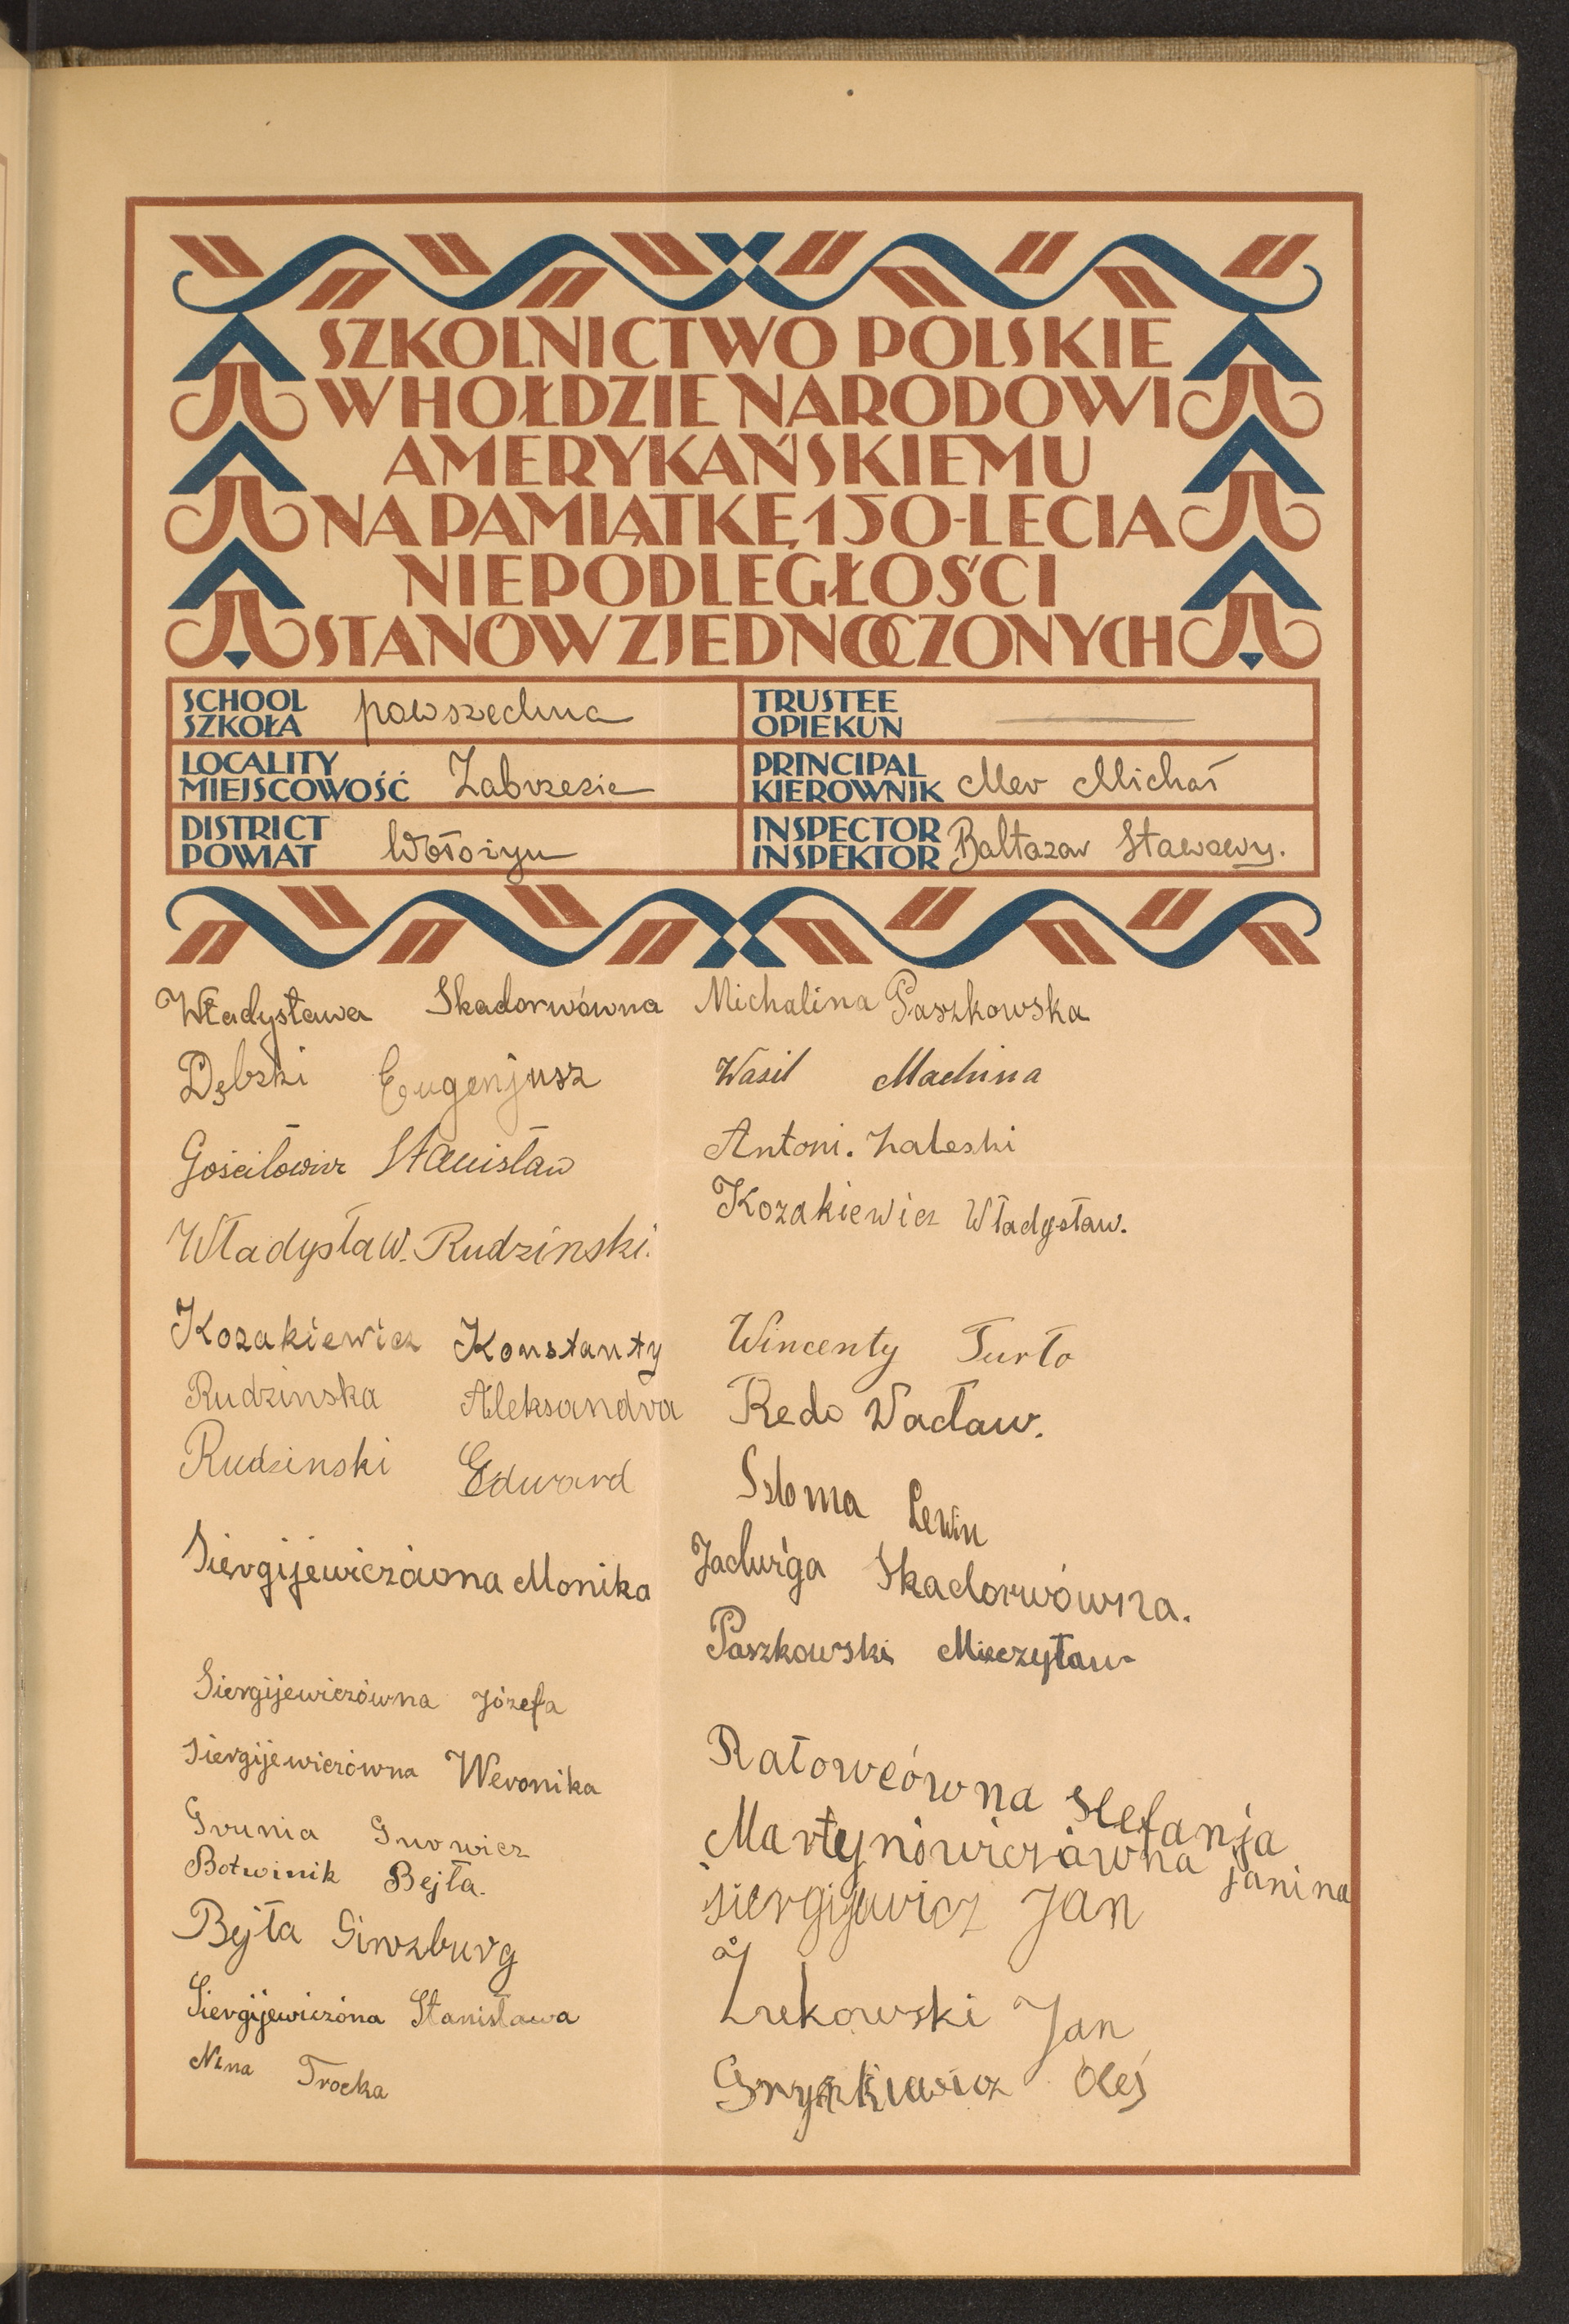 SZKOLNICTWO POLSKIE
W HOŁDZIE NARODOWI
AMERYKAŃSKIEMU
NA PAMIĄTKĘ 150-LECIA
NIEPODLEGŁOŚCI
STANÓW ZJEDNOCZONYCH
SCHOOL
SZKOŁA powszechna
TRUSTEE
OPIEKUN
LOCALITY
MIEJSCOWOŚĆ Zabrzezie
PRINCIPAL
KIEROWNIK Mer Michał
DISTRICT
POWIAT Wołożyn
INSPECTOR
INSPEKTOR Baltazar Stawowy.
Władysława Skadorwówna
Dębski Eugenjusz
Gościłowicz Stanisław
Władysław. Rudzinski.
Kozakiewicz Konstanty
Rudzinska Aleksandra
Rudzinski Edward
Siergijewiczówna Monika
Siergijewiczówna Józefa
Siergijewiczówna Weronika
Grunia Gurwicz
Botwinik Bejła.
Bejła Ginzburg
Siergijewiczóna Stanisława
Nina Trocka
Michalina Paszkowska
Wasil Machina
Antoni. Zaleski
Kozakiewicz Władysław.
Wincenty Turło
Redo Wacław.
Szloma Lewin
Jadwiga Skadorwówna.
Paszkowski Mieczyław
Ratowcówna Stefanja
Martynowiczówna Janina
Siergijewicz Jan
Żukowski Jan
Olej